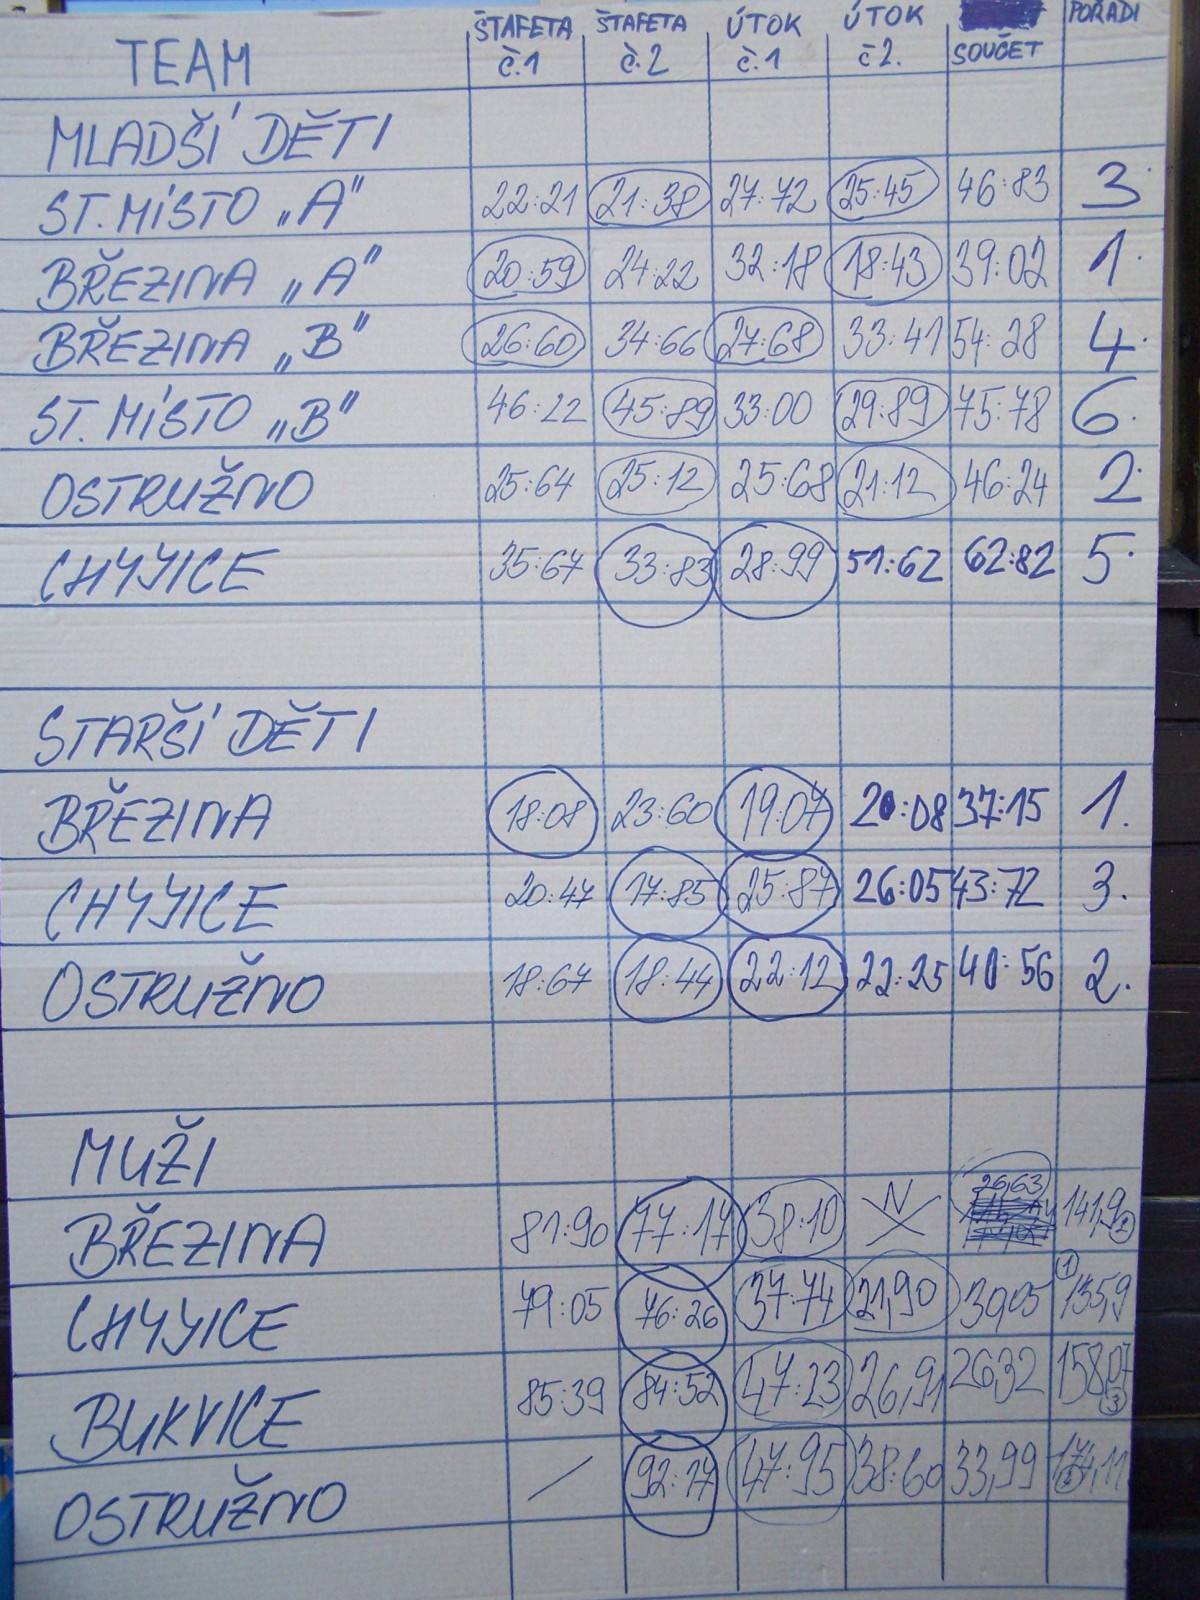 TEAM ŠTAFETA č.1 ŠTAFETA č.2 ÚTOK č.1 ÚTOK č2. SOUČET POŘADÍ
MLADŠÍ DĚTI
ST. MÍSTO „A" 22:21 21:38 27:72 25:45 46:83 3.
BŘEZINA „A" 20:59 24:22 32:18 18:43 39:02 1.
BŘEZINA „B" 26:60 34:66 27:68 33:41 54:28 4.
ST. MÍSTO „B" 46:22 45:89 33:00 29:89 75:78 6.
OSTRUŽNO 25:64 25:12 25:68 21:12 46:24 2.
CHYJICE 35:67 33:83 28:99 51:62 62:82 5.
STARŠÍ DĚTI
BŘEZINA 18:08 23:60 19:07 20:08 37:15 1.
CHYJICE 20:47 17:85 25:87 26:05 43:72 3.
OSTRUŽNO 18:67 18:44 22:12 22:25 40:56 2.
MUŽI
BŘEZINA 81:90 77:17 38:10 N 26,63 141,9 2
CHYJICE 79:05 76:26 37:74 21,90 30,05 1 135,9
BUKVICE 85:39 84:52 47:23 26,91 26,32 158,07 3
OSTRUŽNO / 92:17 47:95 38:60 33,99 174,11